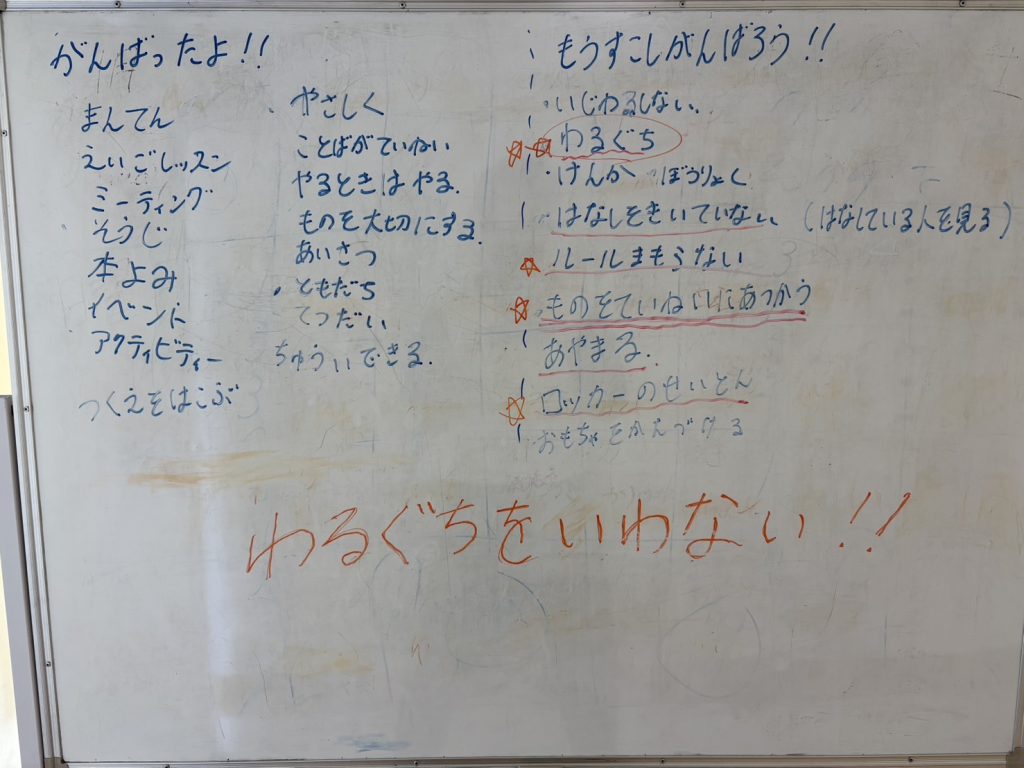 がんばったよ!!
まんてん
えいごレッスン
ミーティング
そうじ
本よみ
イベント
アクティビティー
つくえをはこぶ
やさしく
ことばがていねい
やるときはやる.
ものを大切にする.
あいさつ
・ともだち
てつだい
ちゅういできる.
もうすこしがんばろう!!
・いじわるしない.
☆☆わるぐち
・けんか ぼうりょく
・はなしをきいていない (はなしている人を見る)
☆ルールまもらない
☆・ものをていねいにあつかう
あやまる.
☆・ロッカーのせいとん
おもちゃをかたづける
わるぐちをいわない!!